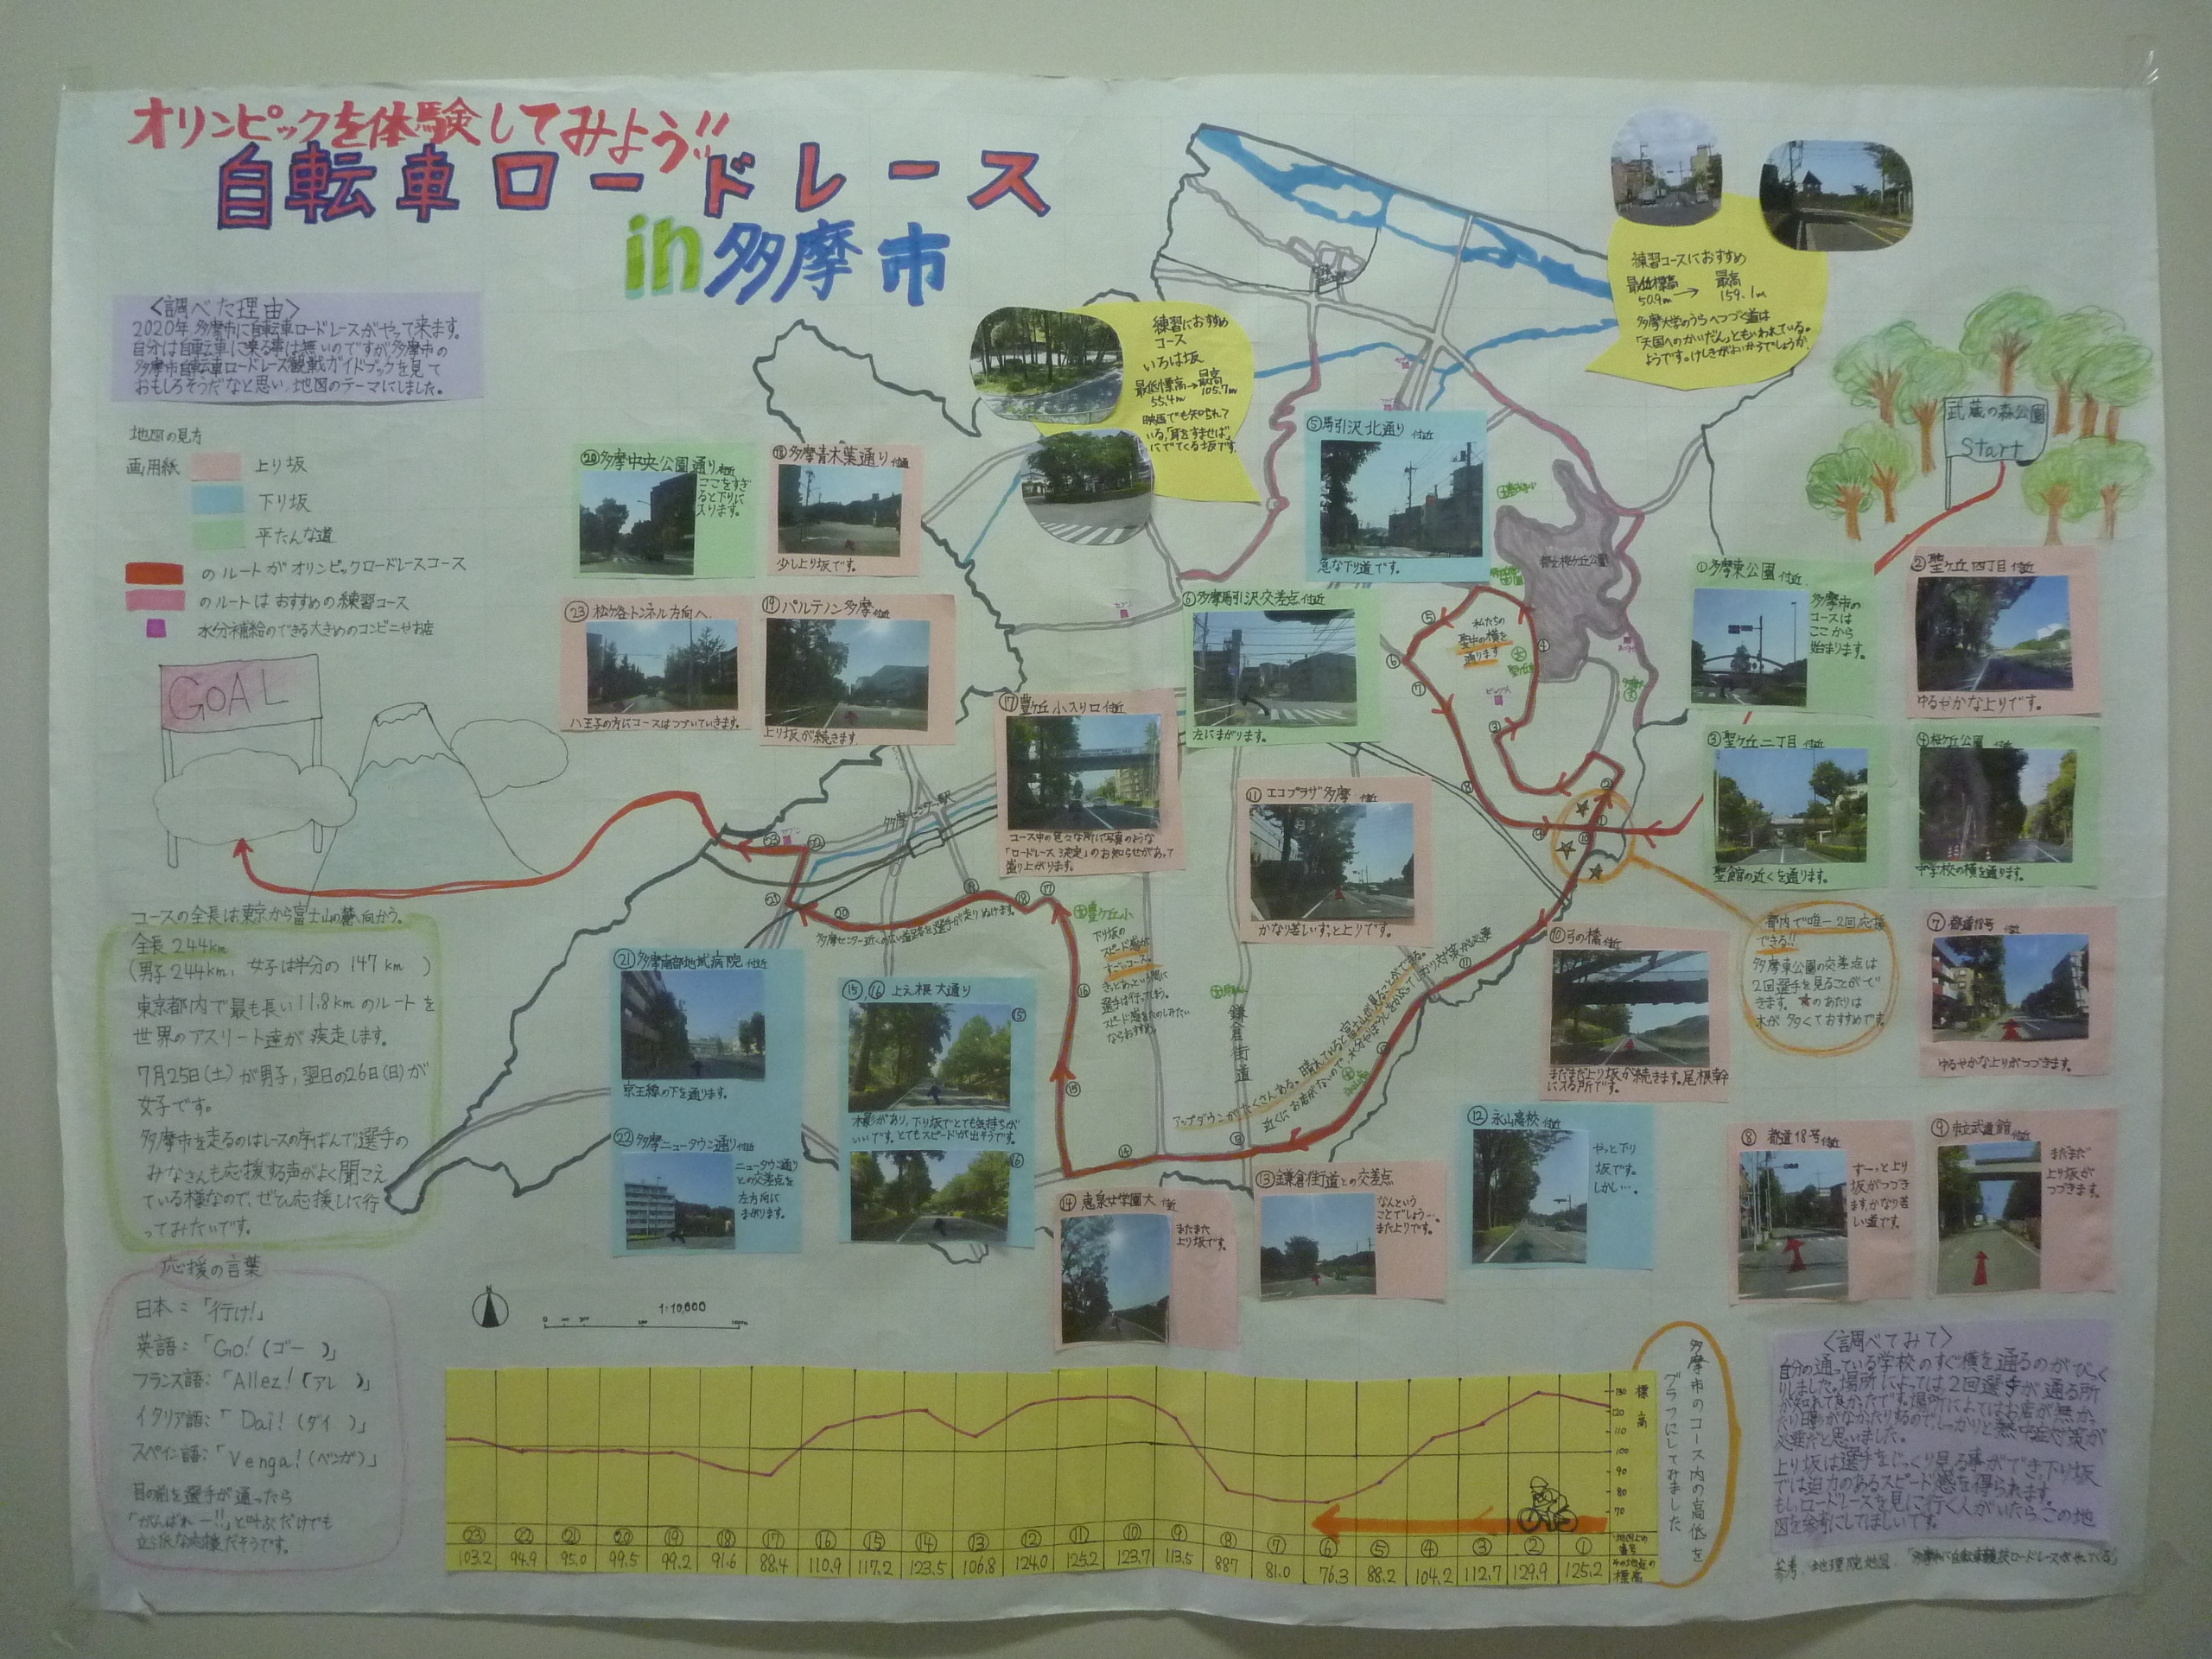 オリンピックを体験してみよう!!
自転車ロードレース
in多摩市
〈調べた理由〉
2020年多摩市に自転車ロードレースがやって来ます。
自分は自転車に乗る事は無いのですが多摩市の
多摩市自転車ロードレース観戦ガイドブックを見て
おもしろそうだなと思い、地図のテーマにしました。
地図の見方
画用紙 上り坂
下り坂
平たんな道
のルートがオリンピックロードレースコース
のルートはおすすめの練習コース
水分補給のできる大きめのコンビニやお店
GOAL
コースの全長は東京から富士山の麓へ向かう。
全長244km
(男子244km、女子は半分の147km)
東京都内で最も長い11.8kmのルートを
世界のアスリート達が疾走します。
7月25日(土)が男子,翌日の26日(日)が
女子です。
多摩市を走るのはレースの序ばんで選手の
みなさんも応援する声がよく聞こえ
ている様なので、ぜひ応援しに行
ってみたいです。
応援の言葉
日本:「行け!」
英語:「Go!(ゴー)」
フランス語:「Allez!(アレ)」
イタリア語:「Dai!(ダイ)」
スペイン語:「Venga!(ベンガ)」
目の前を選手が通ったら
「がんばれー!!」と叫ぶだけでも
立派な応援だそうです。
練習におすすめ
コース
いろは坂
最低標高→最高
55.4m 105.7m
映画でも知られて
いる,「耳をすませば」
にでてくる坂です。
練習コースにおすすめ
最低標高→最高
50.9m 159.1m
多摩大学のうらへつづく道は
「天国へのかいだん」ともいわれている。
ようです。けしきがよいからでしょうか。
武蔵の森公園
Start
⑳多摩中央公園通り付近
ここをすぎ
ると下りに
入ります。
⑱多摩青木葉通り付近
少し上り坂です。
㉓松が谷トンネル方向へ。
八王子の方にコースはつづいていきます。
⑲パルテノン多摩付近
上り坂が続きます
⑰豊ヶ丘小入り口付近
コース中の色々な所に写真のような
「ロードレース決定」のお知らせがあって
盛り上がります。
⑤馬引沢北通り付近
急な下り道です。
⑥多摩馬引沢交差点付近
左にまがります。
都立桜ヶ丘公園
私たちの
聖中の横を
通ります
①多摩東公園付近
多摩市の
コースは
ここから
始まります。
②聖ヶ丘四丁目付近
ゆるやかな上りです。
③聖ヶ丘二丁目付近
聖館の近くを通ります。
④桜ヶ丘公園付近
中学校の横を通ります。
⑪エコプラザ多摩付近
かなり苦しいずっと上りです。
⑩弓の橋付近
まだまだ上り坂が続きます。尾根幹
に入る所です。
都内で唯一2回応援
できる!!
多摩東公園の交差点は
2回選手を見ることがで
きます。★のあたりは
木が多くておすすめです。
⑦都道18号付近
ゆるやかな上りがつづきます。
⑧都道18号付近
ずーっと上り
坂がつづき
ます。かなり苦
しい道です。
⑨市立武道館付近
まだまだ
上り坂が
つづきます。
⑫永山高校付近
やっと下り
坂です。
しかし…。
⑬鎌倉街道との交差点
なんという
ことでしょう…。
また上りです。
⑭恵泉女学園大付近
またまた
上り坂です。
⑮,⑯上之根大通り
木影があり、下り坂でとても気持ちが
いいです。とてもスピードが出そうです。
㉑多摩南部地域病院付近
京王線の下を通ります。
㉒多摩ニュータウン通り付近
ニュータウン通り
との交差点を
左方向に
まがります。
多摩センター駅
多摩センター近くの広い道路を選手が走りぬけます。
豊ヶ丘小
下り坂の
スピード感が
すごいコース。
選手は行ってしまう。
スピード感をたのしみたい
ならおすすめ。
鎌倉街道
アップダウンがたくさんある。晴れていると富士山が見ることができる。
近くにお店がないので、水分やぼうしをかぶってしっかり対策が必要
1:10,000
多摩市のコース内の高低を
グラフにしてみました
標高
130
120
110
100
90
80
70
㉓ ㉒ ㉑ ⑳ ⑲ ⑱ ⑰ ⑯ ⑮ ⑭ ⑬ ⑫ ⑪ ⑩ ⑨ ⑧ ⑦ ⑥ ⑤ ④ ③ ② ① 地図上の番号
103.2 94.9 95.0 99.5 99.2 91.6 88.4 110.9 117.2 123.5 106.8 124.0 125.2 123.7 113.5 88.7 81.0 76.3 88.2 104.2 112.7 129.9 125.2 その地点の標高
〈調べてみて〉
自分の通っている学校のすぐ横を通るのがびっく
りしました。場所によっては2回選手が通る所
が知れて良かったです。場所によってはお店が無かっ
たり日影がなかったりするので、しっかりと熱中症対策が
必要だと思いました。
上り坂は選手をじっくり見る事ができ下り坂
では迫力のあるスピード感を得られます。
もしロードレースを見に行く人がいたらこの地
図を参考にしてほしいです。
参考、地理院地図、「多摩市に自転車競技ロードレースがやってくる」